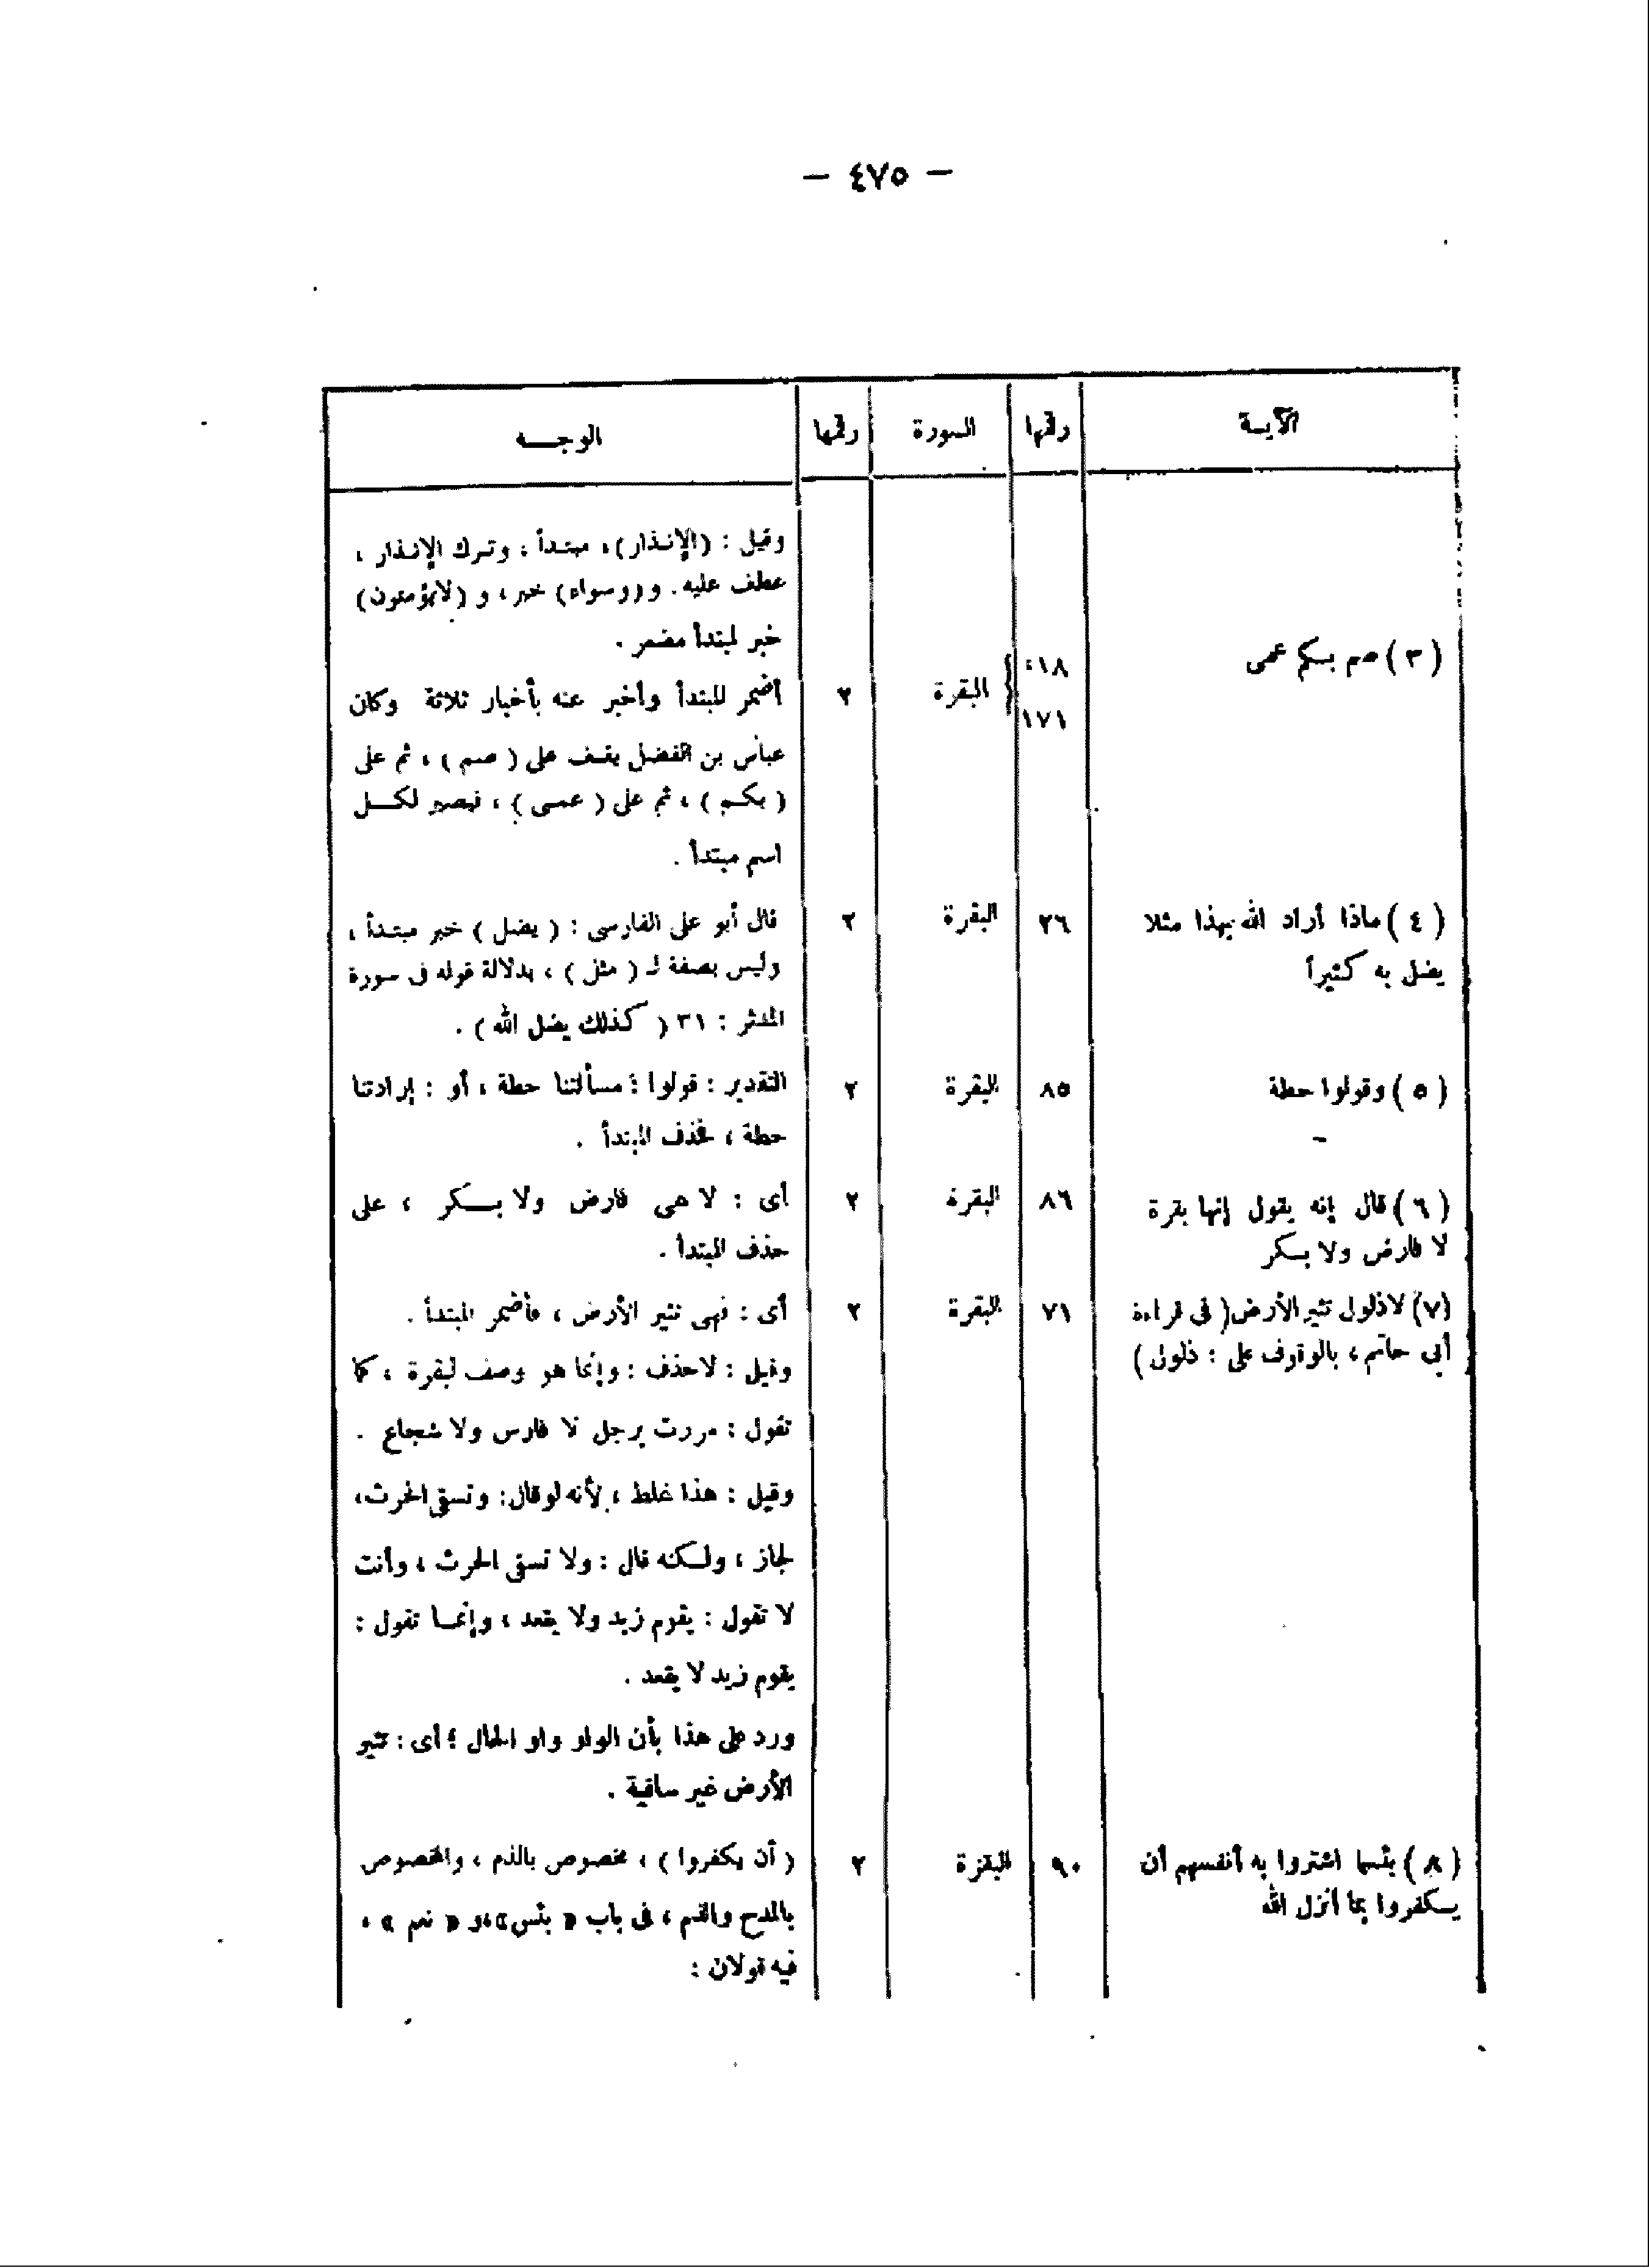 — ٤٧٥ —
الآيــة رقمها السورة رقمها الوجـــه
وقيل : (الإنـذار)، مبتـدأ ، وتـرك الإنـذار ،
عطف عليه . و (وسواء) خبر ، و (لايؤمنون)
خبر لمبتدأ مضمر .
(٣) صم بـكم عمى ١٨، ١٧١ البقرة ٢ أضمر المبتدأ وأخبر عنه بأخبار ثلاثة وكان
عباس بن الفضل يقـف على ( صـم ) ، ثم على
( بكـم ) ، ثم على ( عمـى ) ، فيصير لكـــل
اسم مبتدأ .
( ٤ ) ماذا أراد الله بهذا مثلا ٢٦ البقرة ٢ قال أبو على الفارسى : ( يضل ) خبر مبتـدأ ،
يضل به كثيراً وليس بصفة لـ ( مثل ) ، بدلالة قوله فى سورة
المدثر : ٣١ ( كذلك يضل الله ) .
( ٥ ) وقولوا حطة ٨٥ البقرة ٢ التقدير : قولوا : مسألتنا حطة ، أو : إرادتنا
حطة ، فحذف المبتدأ .
( ٦ ) قال إنه يقول إنها بقرة ٨٦ البقرة ٢ أى : لا هى فارض ولا بـــكر ، على
لا فارض ولا بـكر حذف المبتدأ .
(٧) لاذلول تثير الأرض( فى قراءة ٧١ البقرة ٢ أى : فهى تثير الأرض ، فأضمر المبتدأ .
أبى حاتم ، بالوقوف على : ذلول ) وقيل : لاحذف : وإنما هو وصف لبقرة ، كما
تقول : مررت برجل لا فارس ولا شجاع .
وقيل : هذا غلط ، لأنه لوقال : وتسقى الحرث،
لجاز ، ولـكنه قال : ولا تسقى الحرث ، وأنت
لا تقول : يقوم زيد ولا يقعد ، وإنمـا تقول :
يقوم زيد لا يقعد .
ورد على هذا بأن الواو واو الحال ؛ أى : تثير
الأرض غير ساقية .
( ٨ ) بئسما اشتروا به أنفسهم أن ٩٠ البقرة ٢ ( أن يكفروا ) ، مخصوص بالذم ، والمخصوص
يـكفروا بما أنزل الله بالمدح والذم ، فى باب « بئس»،و « نعم » ،
فيه قولان :